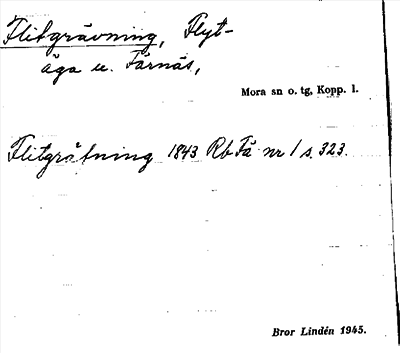 Flitgrävning, Flyt-
äga u. Färnäs,
Mora sn o. tg, Kopp. l.
Flitgräfning 1843 Rb Fä nr 1 s. 323.
Bror Lindén 1945.